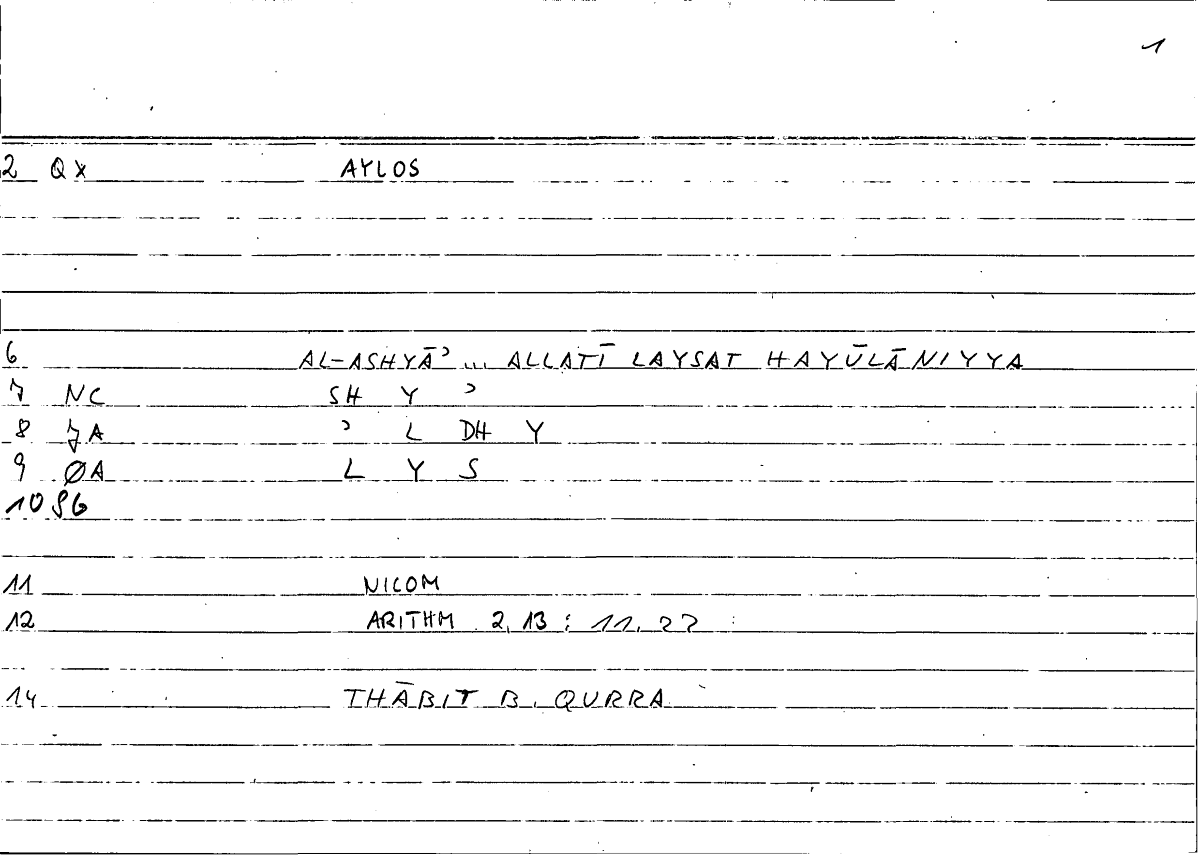 1
2 QX AYLOS
6 AL-ASHYĀʾ ... ALLATĪ LAYSAT HAYŪLĀNIYYA
7 NC SH Y ʾ
8 7A ʾ L DH Y
9 ØA L Y S
10 86
11 NICOM
12 ARITHM 2,13 : 11,22
14 THĀBIT B. QURRA